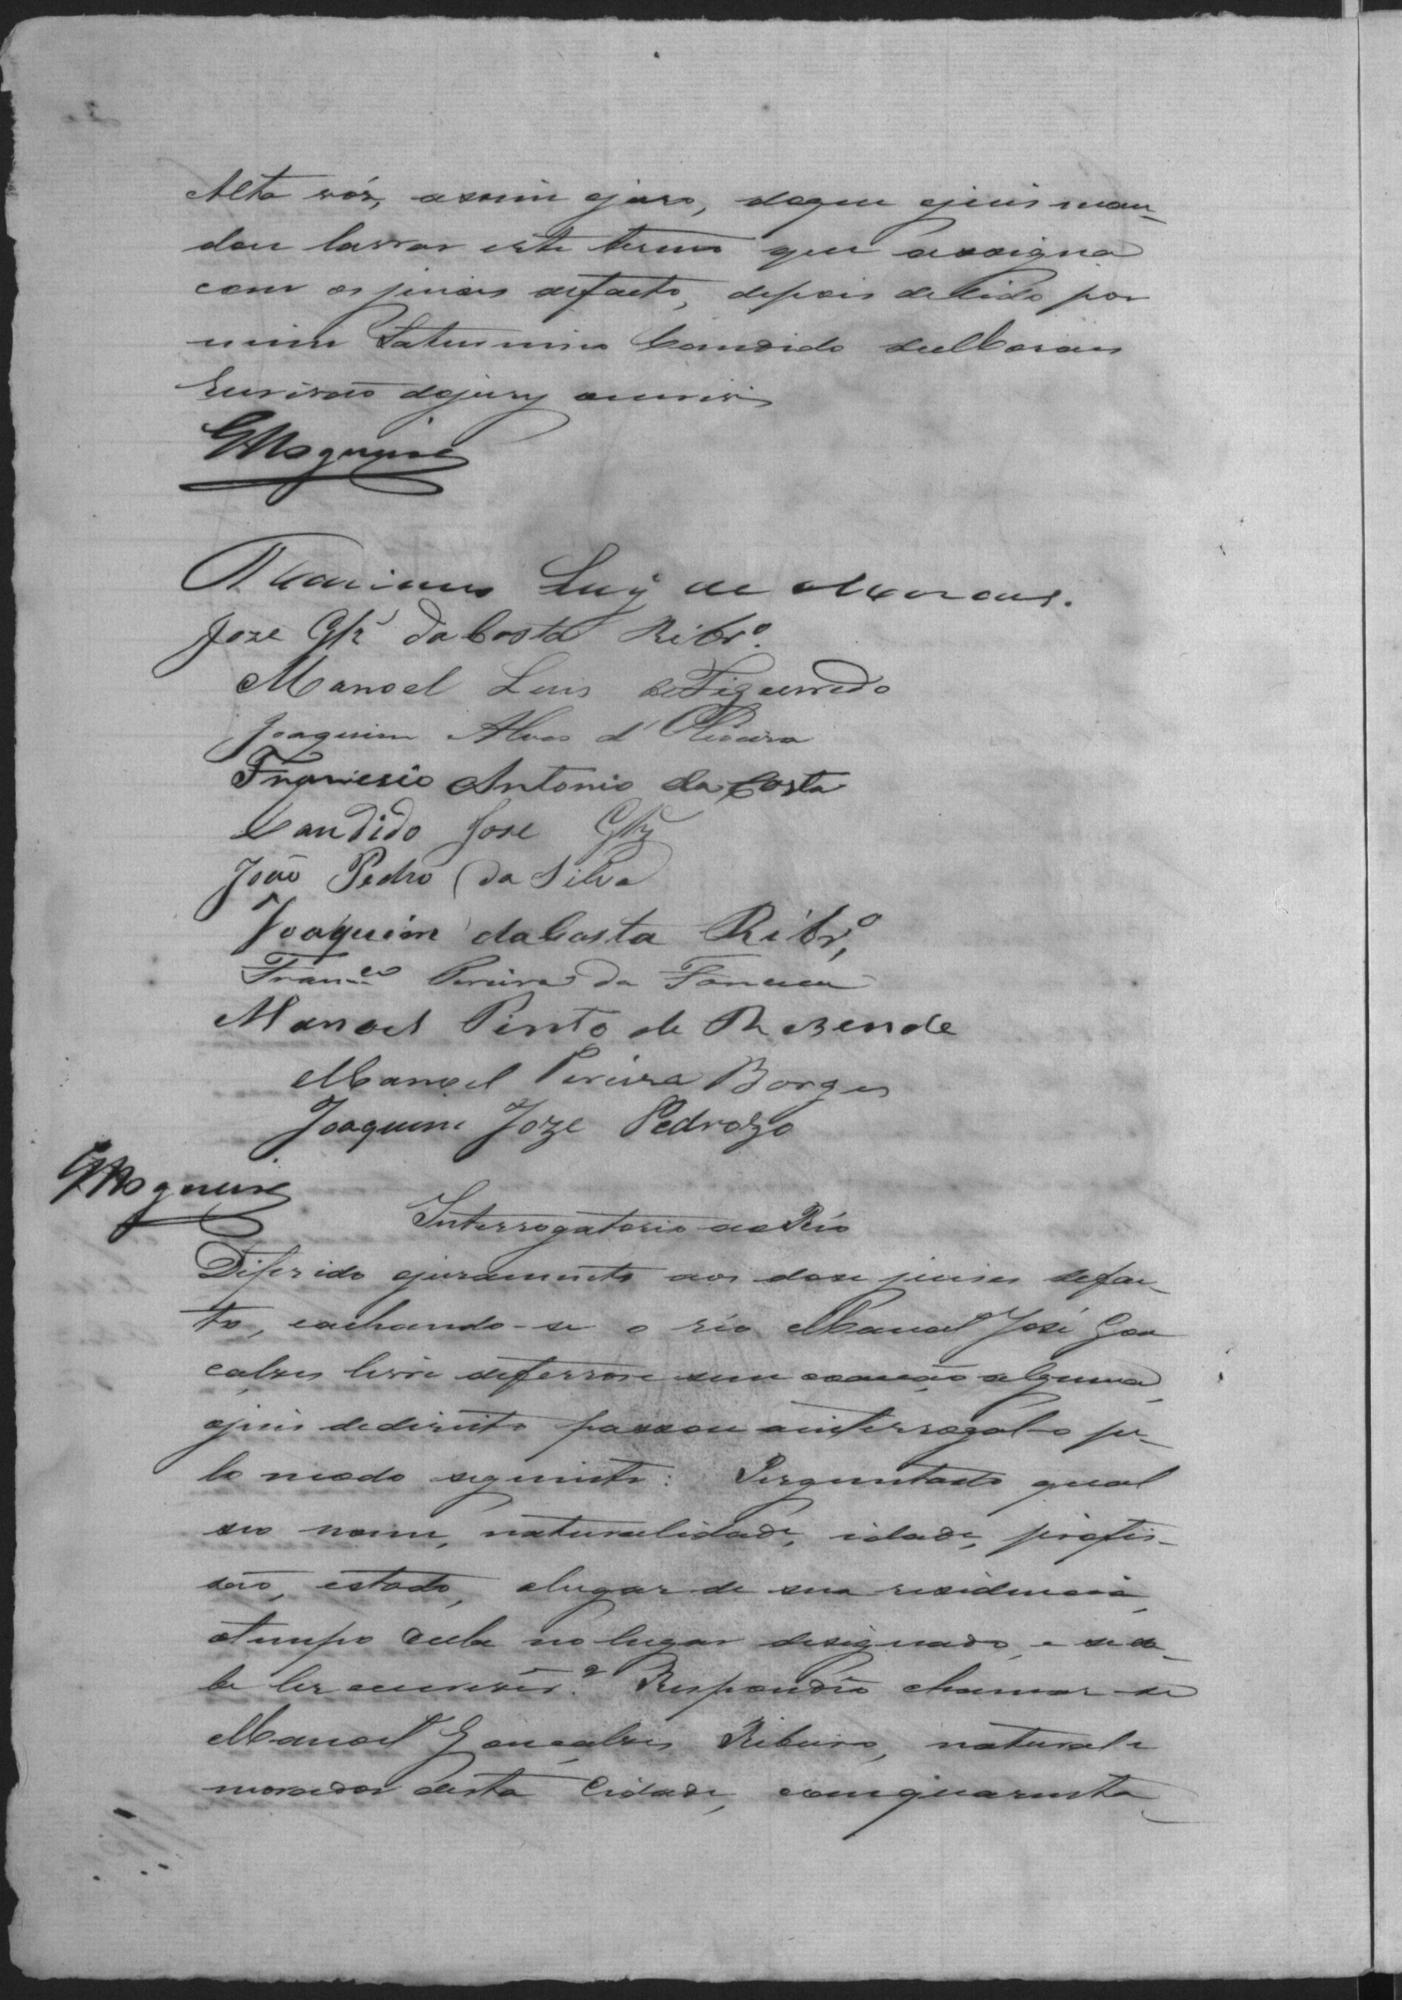 Alta vós, assim ojuro, doque ojuis man-
dou lavrar este termo que assigna
com os juises defacto, depois de lido por
mim Saturnino Candido de Moraes
Escrivão dojury escrivi
Marianno Luiz de Moraes.
Joze Glz daCosta Ribrº.
Manoel Luis de Figueiredo
Joaquim Alves d'Oliveira
Francisco Antonio da Costa
Candido Jose Glz
João Pedro da Silva
Joaquim daCosta Ribrº,
Franco Pereira da Fonceca
Manoel Pinto de Rezende
Manoel Pereira Borges
Joaquim Joze Pedrozo
Interrogatorio ao Réo
Diferido ojuramento aos dose juises defac-
to, eachando-se o réo Manoel José Gon
calves livre deferros e sem coacção alguma,
ojuis dedireito passou ainterrogal-o pe-
lo modo seguinte: Perguntado qual
seo nome, naturalidade, idade, profis-
são, estado, elugar de sua residencia,
otempo della no lugar designado, e se sa-
be ler eescrever? Respondeo chamar-se
Manoel Gonçalves Ribeiro, natural e
morador desta Cidade, comquarenta